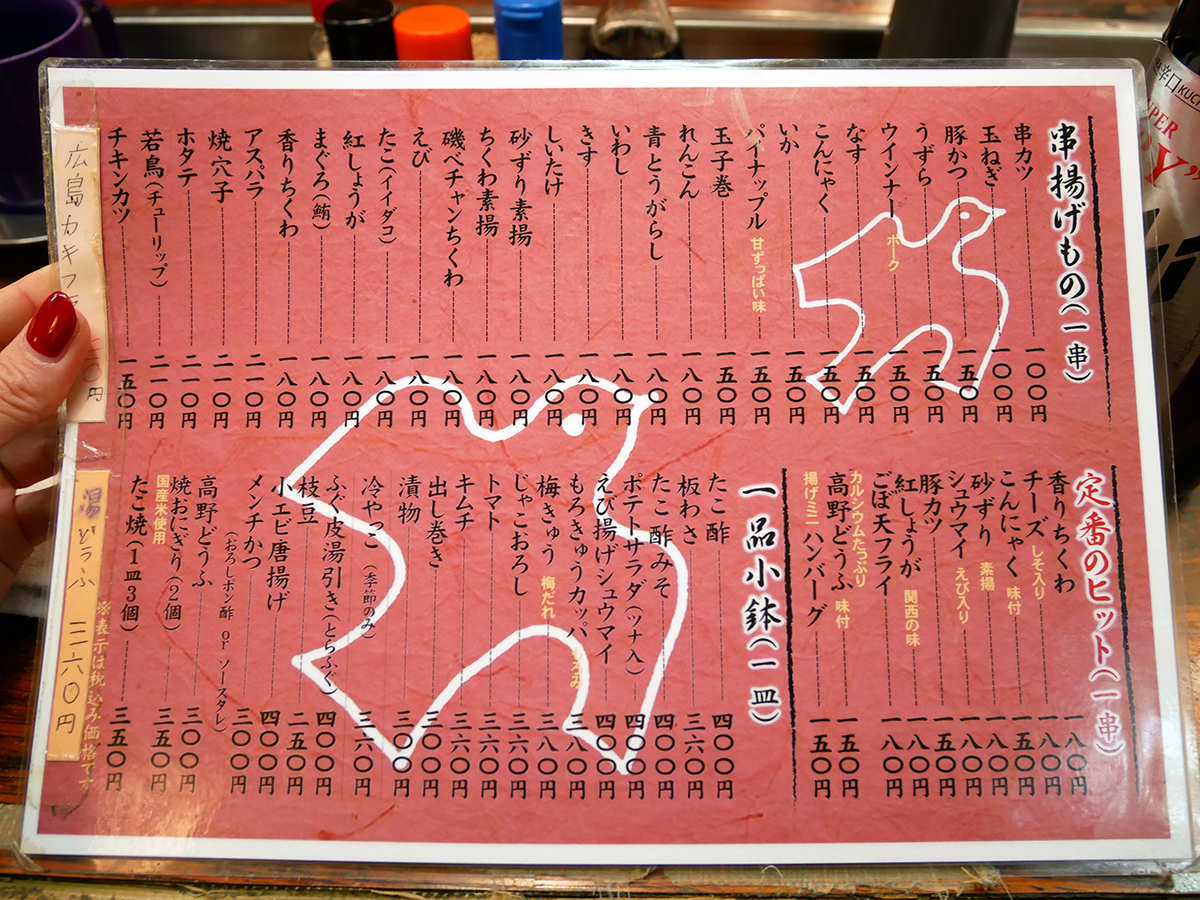 串揚げもの(一串)
串カツ 一〇〇円
玉ねぎ 一〇〇円
豚かつ 一五〇円
うずら 一五〇円
ウインナー ポーク 一五〇円
なす 一五〇円
こんにゃく 一五〇円
いか 一五〇円
パイナップル 甘ずっぱい味 一五〇円
玉子巻 一五〇円
れんこん 一八〇円
青とうがらし 一八〇円
いわし 一八〇円
きす 一八〇円
しいたけ 一八〇円
砂ずり素揚 一八〇円
ちくわ素揚 一八〇円
磯ベチャンちくわ 一八〇円
えび 一八〇円
たこ(イイダコ) 一八〇円
紅しょうが 一八〇円
まぐろ(鮪) 一八〇円
香りちくわ 一八〇円
アスパラ 二一〇円
焼穴子 二一〇円
ホタテ 二一〇円
若鳥(チューリップ) 二一〇円
チキンカツ 一五〇円
広島カキフ 円
定番のヒット(一串)
香りちくわ 一八〇円
チーズ しそ入り 一八〇円
こんにゃく 味付 一五〇円
砂ずり 素揚 一八〇円
シュウマイ えび入り 一八〇円
豚カツ 一五〇円
紅しょうが 関西の味 一八〇円
ごぼ天フライ 一八〇円
カルシウムたっぷり
高野どうふ 味付 一五〇円
揚げミニ ハンバーグ 一五〇円
一品小鉢(一皿)
たこ酢 四〇〇円
板わさ 三〇〇円
たこ酢みそ 四〇〇円
ポテトサラダ(ツナ入) 四〇〇円
えび揚げシュウマイ 四〇〇円
もろきゅうカッパ もろみ 三八〇円
梅きゅう 梅だれ 三八〇円
じゃこおろし 三六〇円
トマト 三六〇円
キムチ 三六〇円
出し巻き 三〇〇円
漬物 三〇〇円
冷やっこ(季節のみ) 三六〇円
ふぐ皮湯引き(とらふぐ) 四〇〇円
枝豆 二五〇円
小エビ唐揚げ 四〇〇円
メンチかつ 三〇〇円
(おろしポン酢 or ソースタレ)
高野どうふ 三〇〇円
焼おにぎり(2個) 三五〇円
国産米使用
たこ焼(1皿3個) 三五〇円
※表示は税込み価格です
湯どうふ 三六〇円